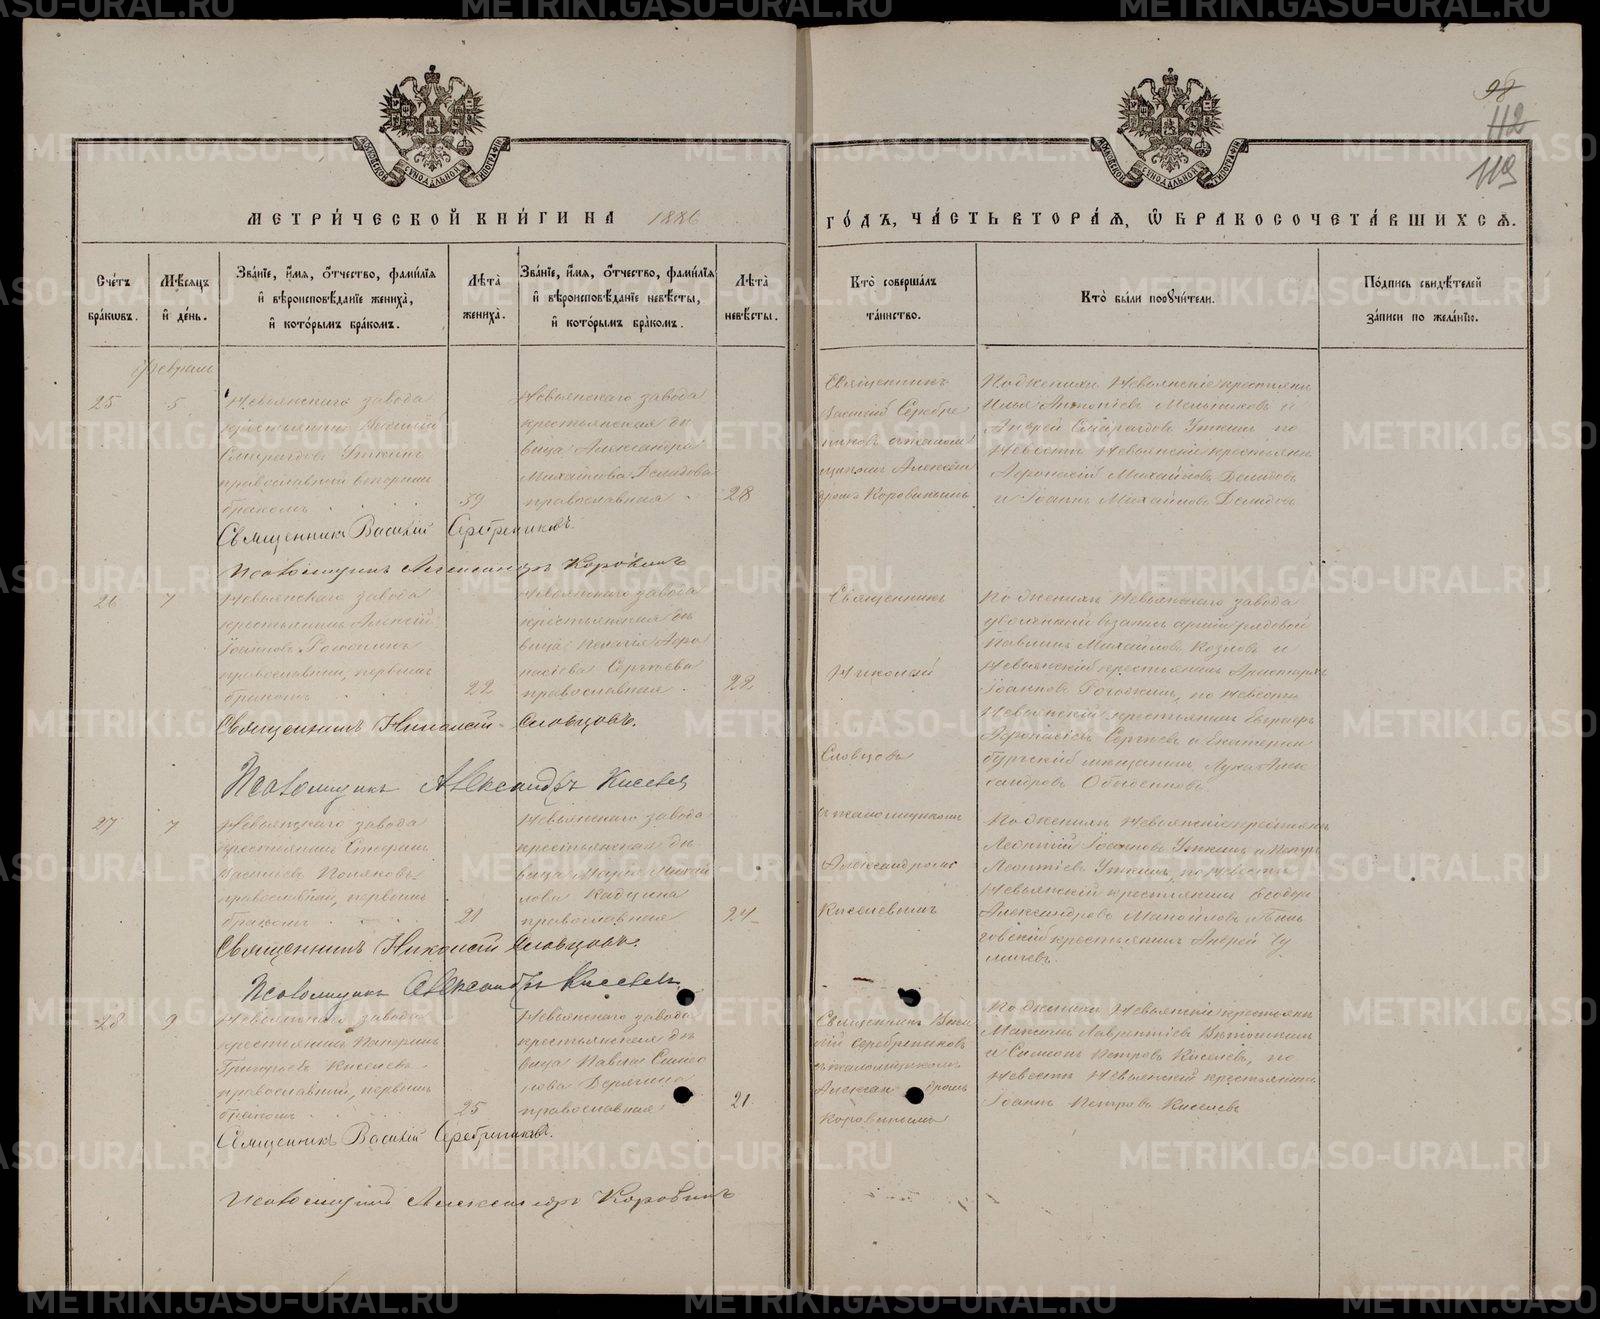 98
112
113
МОСКОВСКОЙ СѴНОДАЛЬНОЙ ТИПОГРАФІИ
МОСКОВСКОЙ СѴНОДАЛЬНОЙ ТИПОГРАФІИ
МЕТРИ́ЧЕСКОЙ КНИ́ГИ НА 1886
ГО́ДЪ, ЧА́СТЬ ВТОРА́Ѧ, Ѿ БРАКОСОЧЕТА́ВШИХСѦ.
Сче́тъ
бра́кѡвъ.
Мѣ́сяцъ
и де́нь.
Зва́нїе, и́мѧ, о́тчество, фами́лїѧ
и вѣроисповѣ́данїе жениха̀,
и кото́рымъ бра́комъ.
Лѣта̀
жениха̀.
Зва́нїе, и́мѧ, о́тчество, фами́лїѧ
и вѣроисповѣ́данїе невѣ́сты,
и кото́рымъ бра́комъ.
Лѣта̀
невѣ́сты.
Кто̀ соверша́лъ
та́инство.
Кто̀ бы́ли пору́чители.
По́дпись свидѣ́телей
за́писи по жела́нїю.
Февраль
25
5
Невьянскаго завода
крестьянинъ Василій
Смарагдовъ Уткинъ
православный вторымъ
бракомъ
39
Невьянскаго завода
крестьянская дѣ
вица Александра
Михайлова Демидова
православная
28
Священникъ
Василій Серебре
никовъ съ псалом
щикомъ Алексан
дромъ Коровинымъ
По женихѣ Невьянскіе крестьяне
Илья Антоніевъ Мельниковъ и
Андрей Смарагдовъ Уткинъ по
Невѣстѣ Невьянскіе крестьяне
Афонасій Михайловъ Демидовъ
и Іоаннъ Михайловъ Демидовъ
Священникъ Василій Серебрениковъ.
Псаломщикъ Александръ Коровинъ
26
7
Невьянскаго завода
крестьянинъ Алексѣй
Іоанновъ Рогожинъ
православный, первымъ
бракомъ
22
Невьянскаго завода
крестьянская дѣ
вица Пелагія Афо
насіева Сергѣева
православная
22
Священникъ
Николай
Словцовъ
съ псаломщикомъ
Александромъ
Киселевымъ
По женихѣ Невьянскаго завода
уволенный въ запасъ арміи рядовой
Павлинъ Михайловъ Козловъ и
Невьянскій крестьянинъ
Іоанновъ Рогожинъ, по Невѣстѣ
Невьянскій крестьянинъ
Афонасіевъ Сергѣевъ и Екатерин
бургскій мѣщанинъ Лука Алек
сандровъ Обыденновъ
Священникъ Николай Словцовъ.
Псаломщикъ Александръ Киселевъ
27
7
Невьянскаго завода
крестьянинъ Стефанъ
Васильевъ Поляковъ
православный, первымъ
бракомъ
21
Невьянскаго завода
крестьянская дѣ
вица Марія Михай
лова Кадцина
православная
24
По женихѣ Невьянскіе крестьяне
Леонтій Іоанновъ Уткинъ и Петръ
Леонтіевъ Уткинъ, по Невѣстѣ
Невьянскій крестьянинъ Ѳеодоръ
Александровъ Манойловъ и Бынь
говскій крестьянинъ Андрей
Священникъ Николай Словцовъ.
Псаломщикъ Александръ Киселевъ
28
9
Невьянскаго завода
крестьянинъ
Григорьевъ Киселевъ
православный, первымъ
бракомъ
25
Невьянскаго завода
крестьянская дѣ
вица Павла Симео
нова Дерягина
православная
21
Священникъ Васи
лій Серебрениковъ
съ псаломщикомъ
Александромъ
Коровинымъ
По женихѣ Невьянскіе крестьяне
Максимъ Лаврентіевъ
и Симеонъ Петровъ Киселевъ, по
Невѣстѣ Невьянскій крестьянинъ
Іоаннъ Петровъ Киселевъ
Священникъ Василій Серебрениковъ.
Псаломщикъ Александръ Коровинъ
METRIKI.GASO-URAL.RU